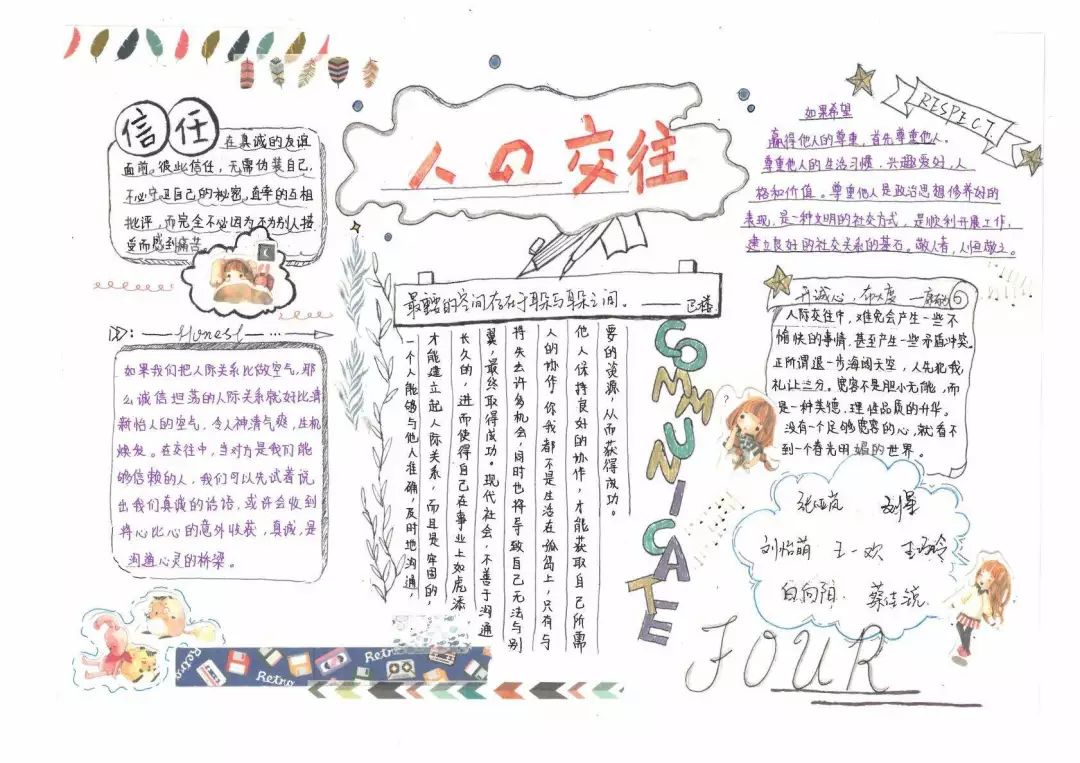 人の交往
信任
在真诚的友谊
面前。彼此信任，无需伪装自己，
自己的秘密，直率的互相
批评，而完全不必因为不为别人接
受而感到痛苦
Honest
如果我们把人际关系比做空气，那
么诚信坦荡的人际关系就好比清
新怡人的空气，令人神清气爽，生机
焕发。在交往中，当对方是我们能
够信赖的人，我们可以先试着说
出我们真诚的话语，或许会收到
将心比心的意外收获，真诚，是
沟通心灵的桥梁。
最的空间存在于朵与朵之间。——巴
一个人能够与他人准确，及时地沟通，
才能建立起人际关系，而且是牢固的，
长久的，进而使得自己在事业上如虎添
翼，最终取得成功。现代社会，不善于沟通
将失去许多机会，同时也将导致自己无法与别
人的协作。你我都不是生活在孤岛上，只有与
他人保持良好的协作，才能获取自己所需
要的资源，从而获得成功。
COMMUNICATE
RESPECT
如果希望
赢得他人的尊重，首先尊重他人。
尊重他人的生活习惯、兴趣爱好，人
格和价值。尊重他人是政治思想修养好的
表现，是一种文明的社交方式，是顺利开展工作，
建立良好的社交关系的基石。敬人者，人恒敬之。
开诚心，布大度
人际交往中，难免会产生一些不
愉快的事情，甚至产生一些矛盾冲突。
正所谓退一步海阔天空，人先犯我，
礼让三分。宽容不是胆小无能，而
是一种美德，理性品质的升华。
没有一个足够宽容的心，就看不
到一个春光明媚的世界。
张亚岚 刘星
刘怡萌 王一欢
白向阳
FOUR
Retro
Retro
Retro